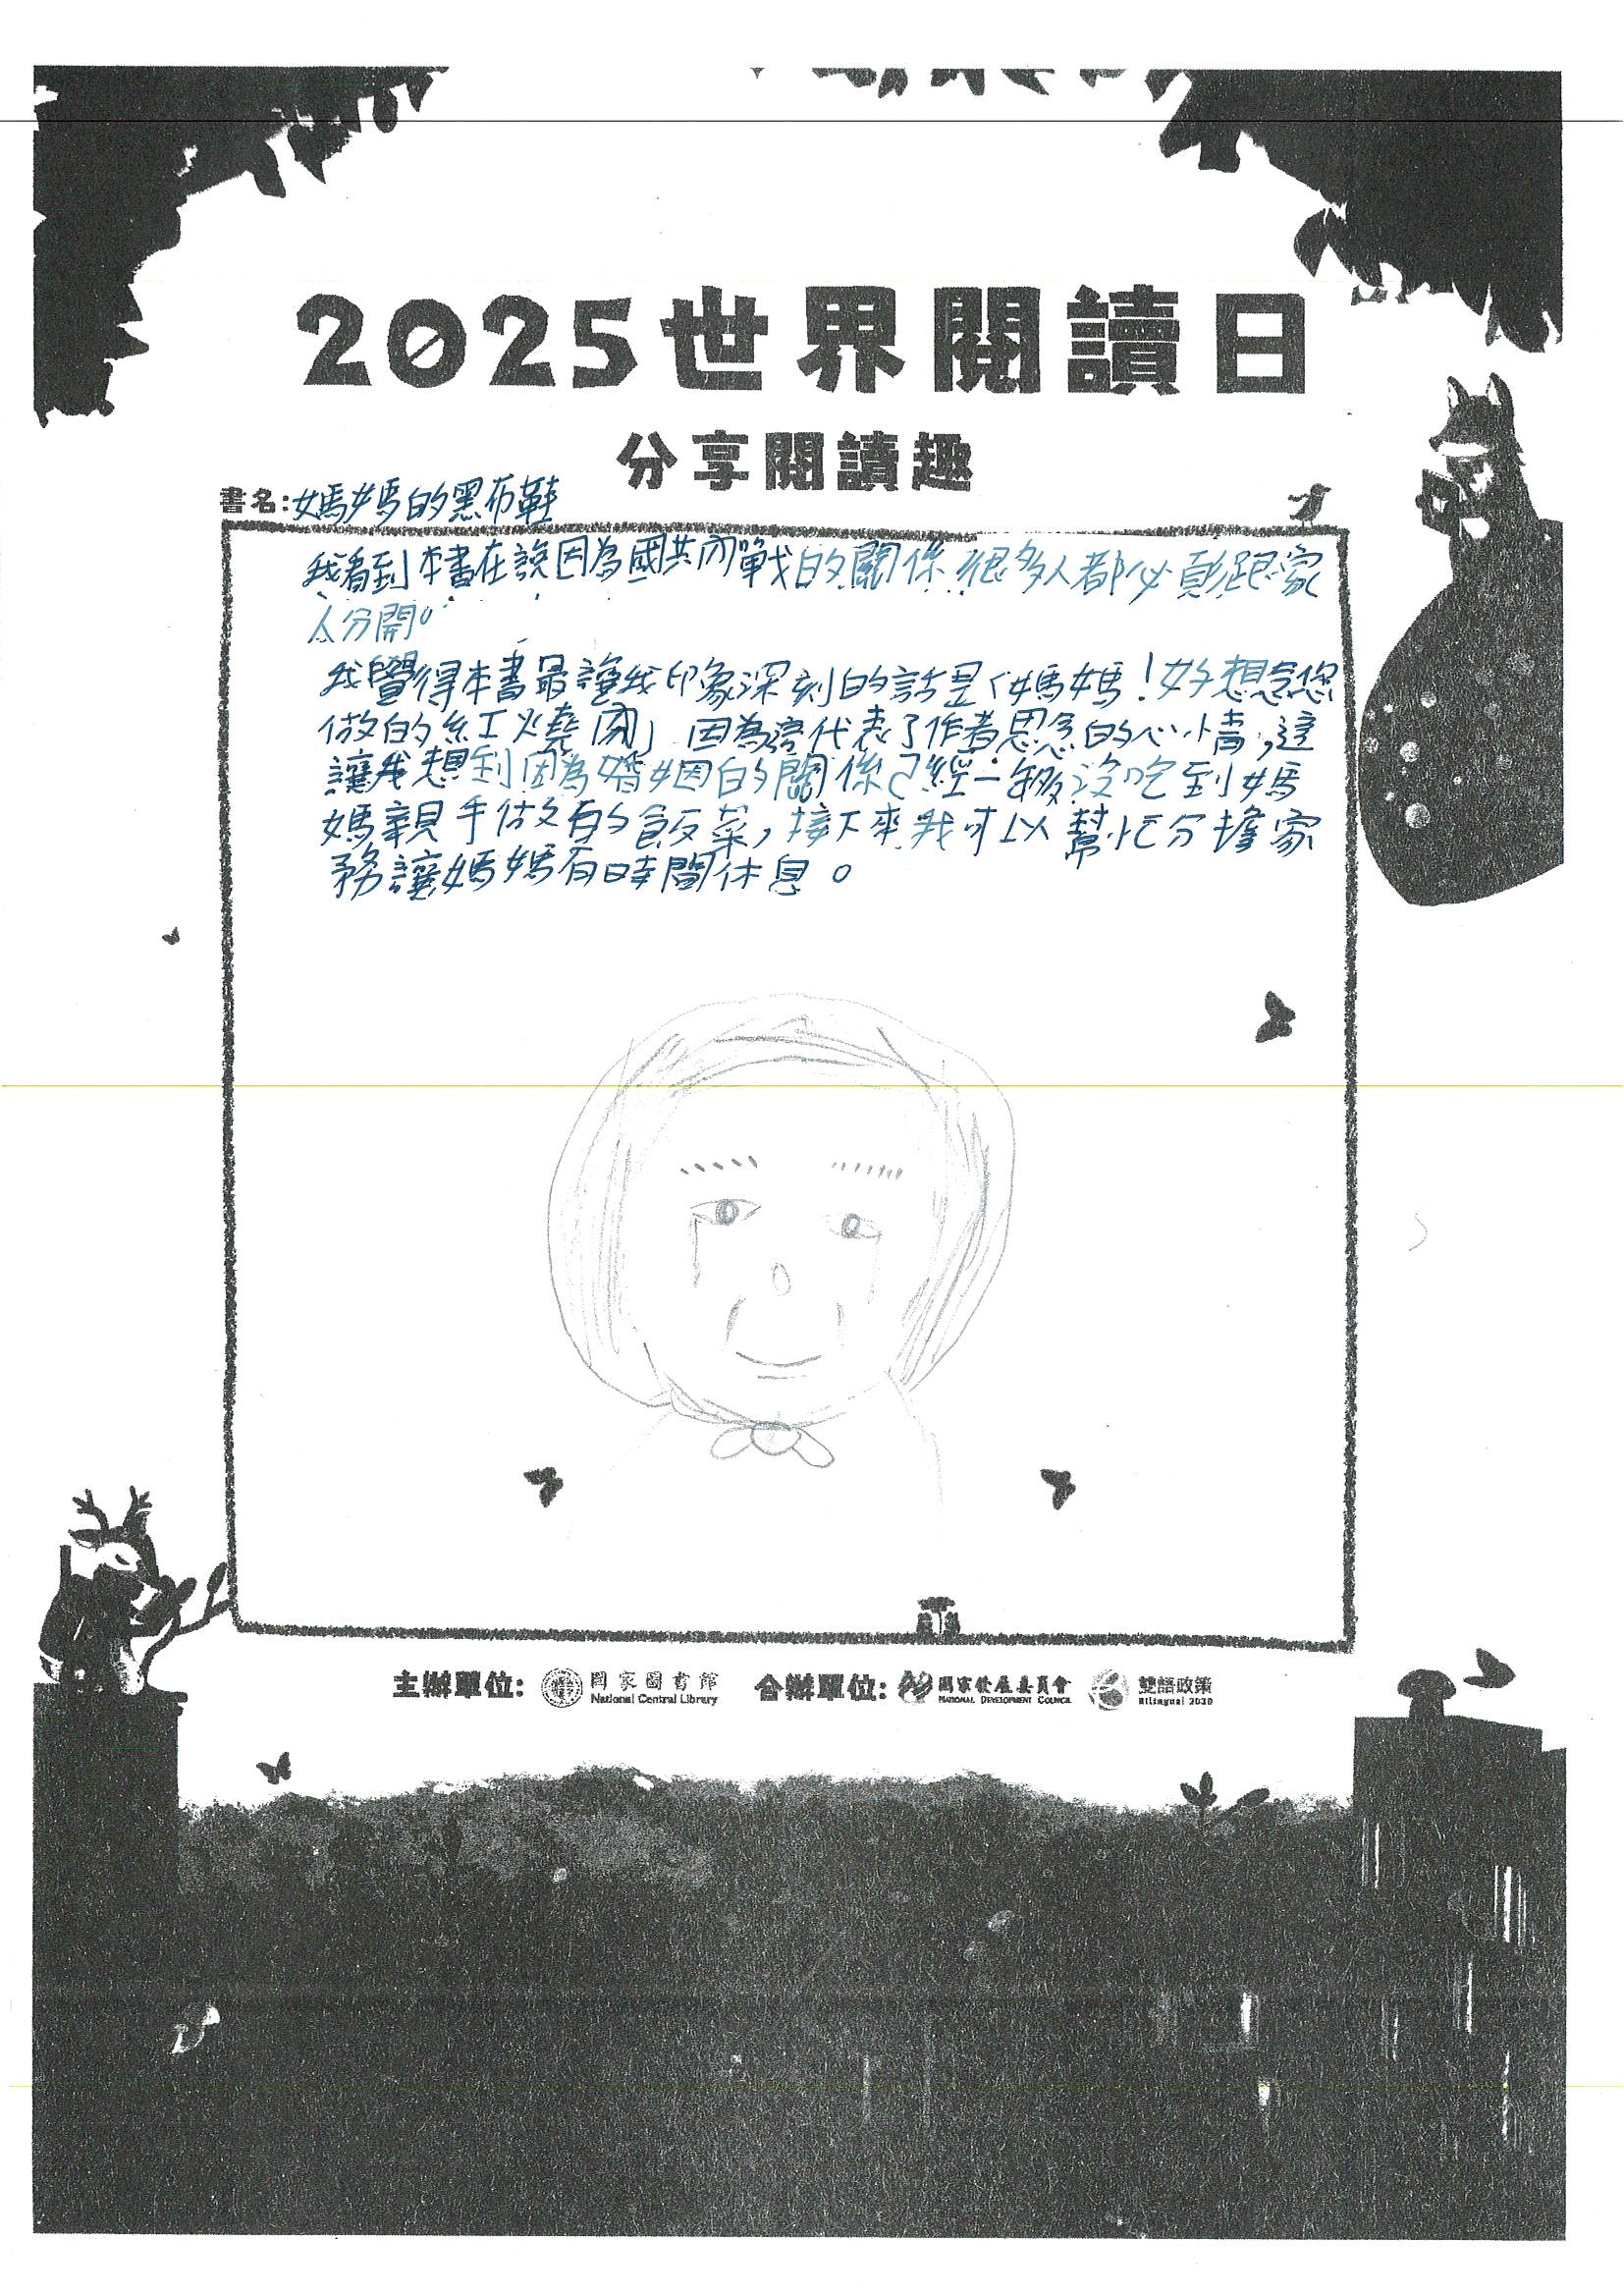 2025世界閱讀日
分享閱讀趣
書名:媽媽的黑布鞋
我看到本書在說因為國共內戰的關係很多人都必須跟家
人分開。
我覺得本書最讓我印象深刻的話是「媽媽！好想念您
做的紅燒肉」因為這代表了作者思念的心情,這
讓我想到因為婚姻的關係已經一年多沒吃到媽
媽親手做的飯菜,接下來我可以幫忙分擔家
務讓媽媽有時間休息。
主辦單位: 國家圖書館 National Central Library 合辦單位: 國家發展委員會 NATIONAL DEVELOPMENT COUNCIL 雙語政策 Bilingual 2030